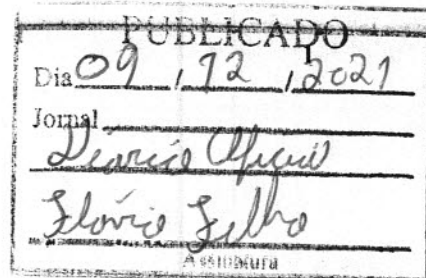 PUBLICADO
Dia 09 / 12 / 2021
Jornal
Diario Oficial
Flávio Filho
Assinatura